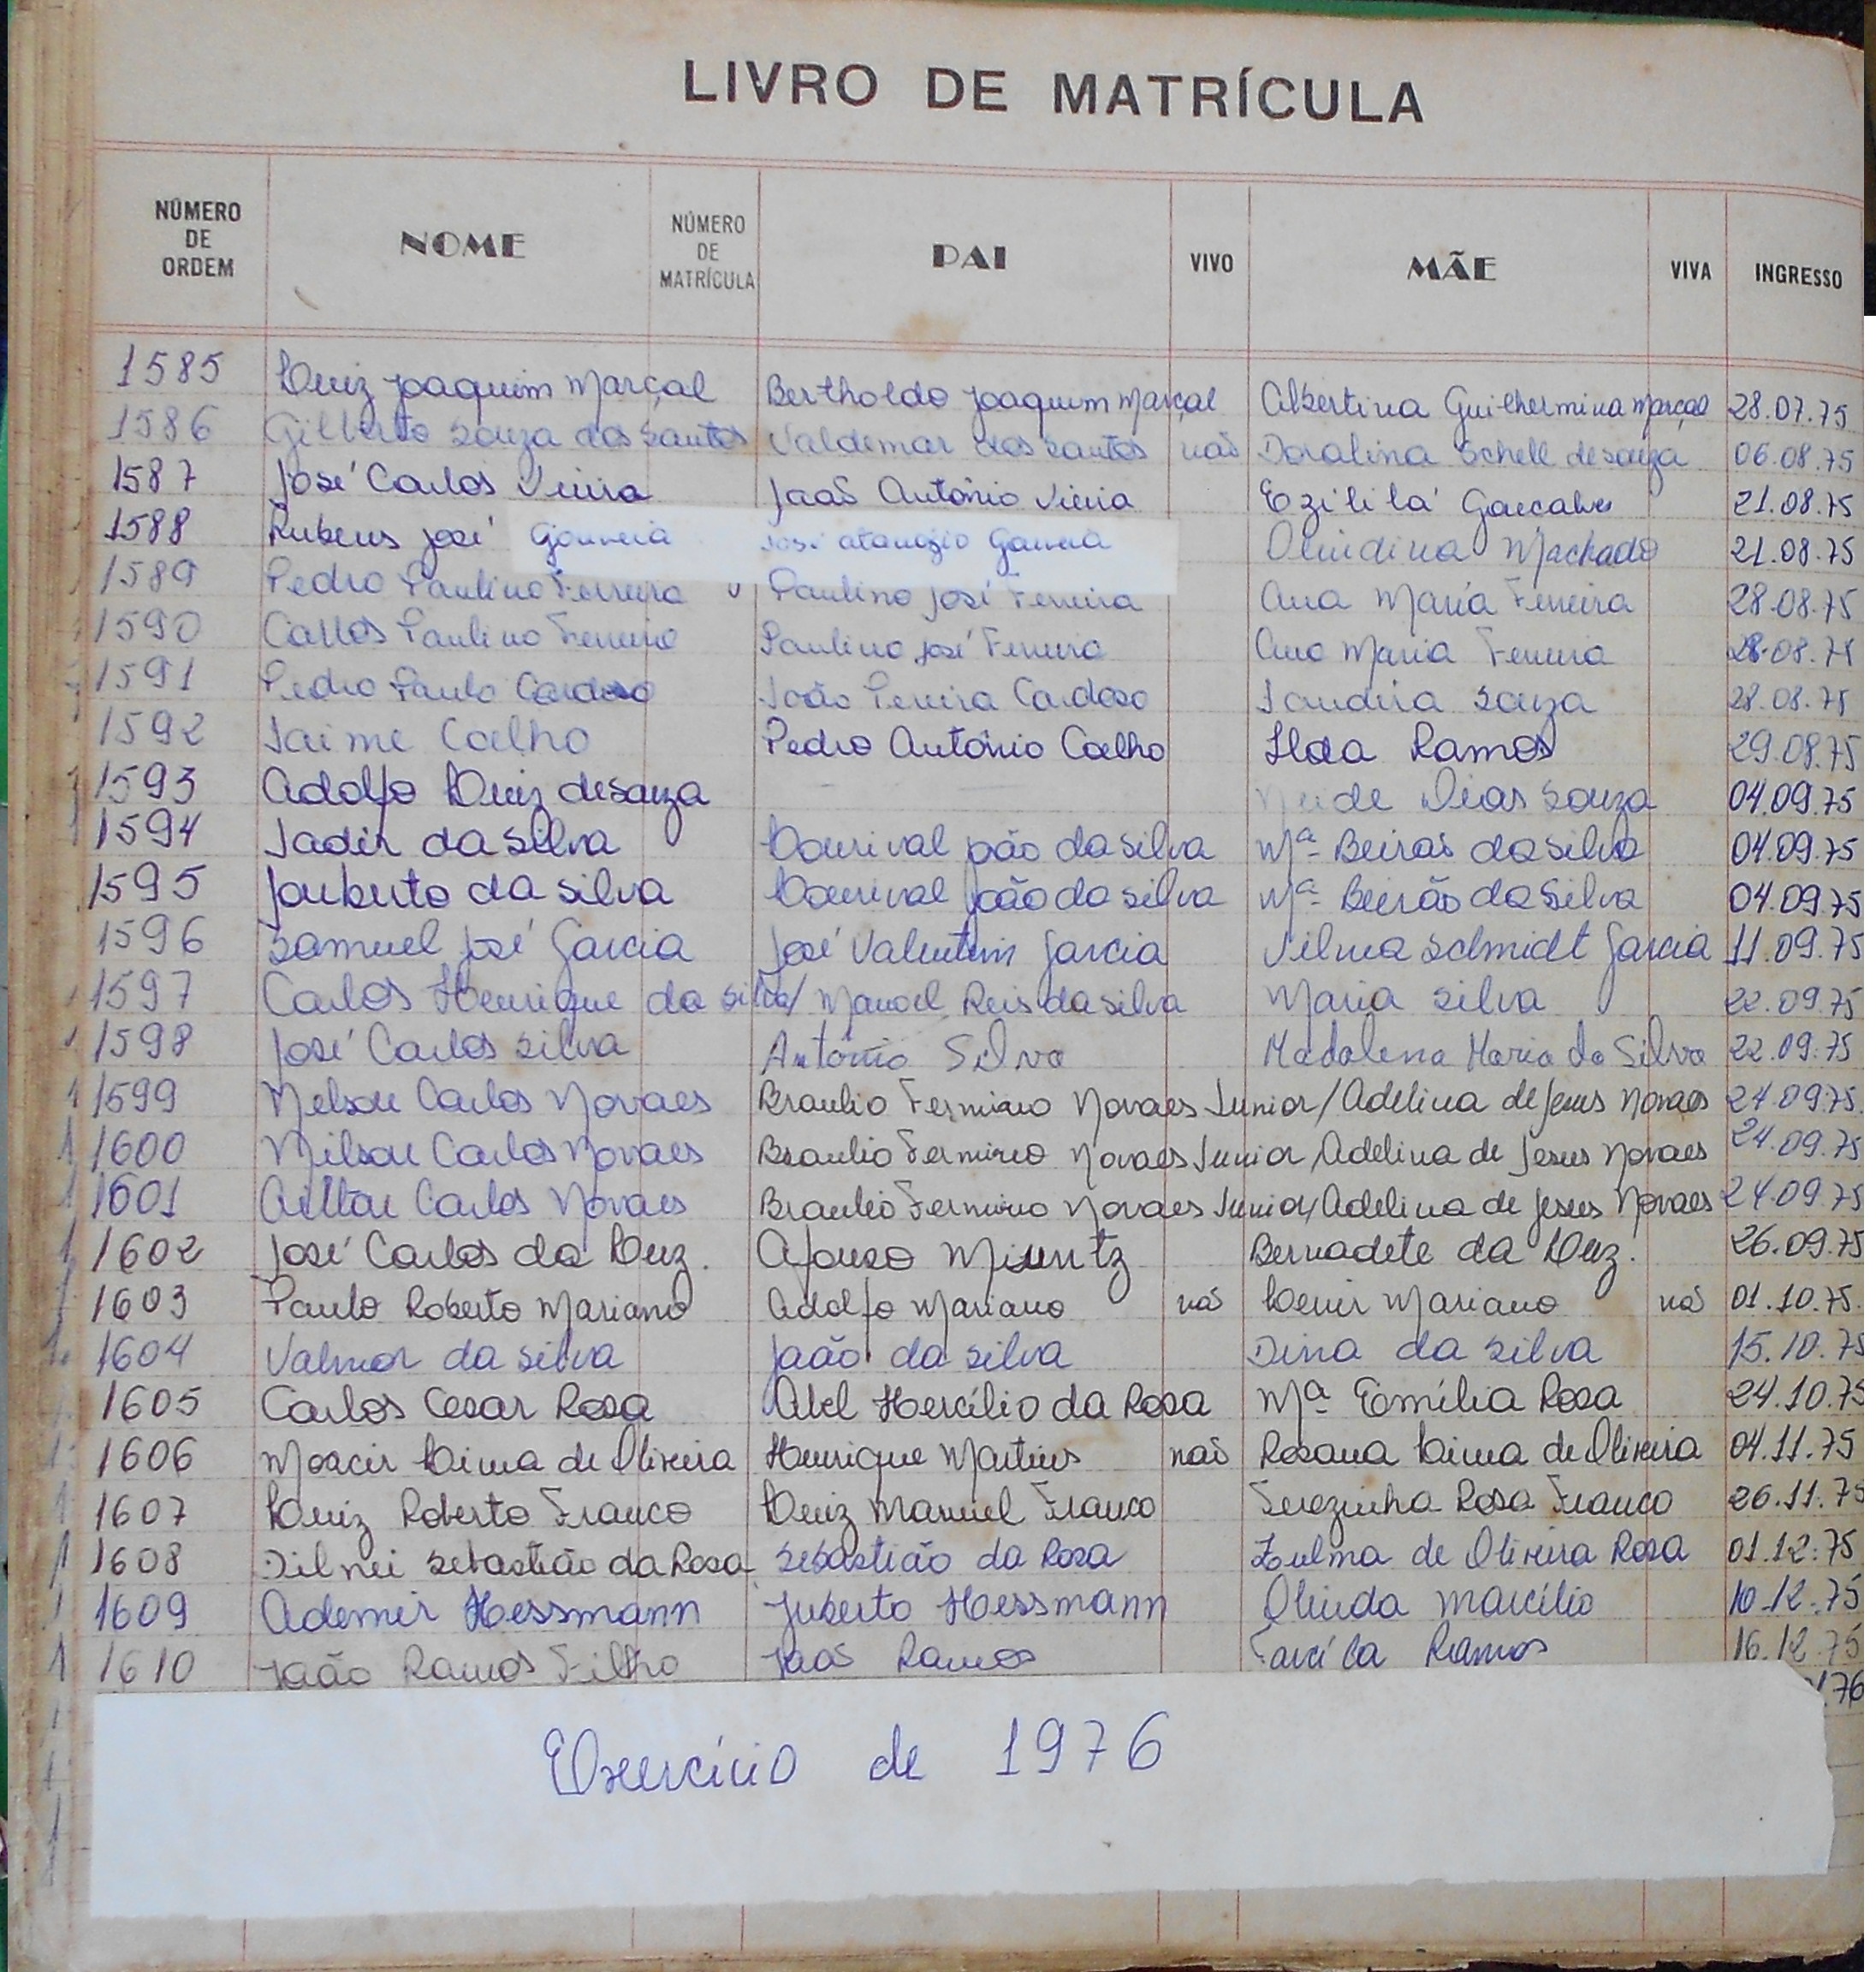 LIVRO DE MATRÍCULA
NÚMERO DE ORDEM NOME NÚMERO DE MATRÍCULA PAI VIVO MÃE VIVA INGRESSO
1585 Luiz Joaquim Marçal Bertholdo Joaquim Marçal Albertina Guilhermina Marçal 28.07.75
1586 Gilberto Souza dos Santos Valdemar dos Santos não Doralina Schell de Souza 06.08.75
1587 José Carlos Vieira João Antônio Vieira Ezilila Goncalves 21.08.75
1588 Rubens José Gouveia José Atanazio Gouveia Olindina Machado 21.08.75
1589 Pedro Paulino Ferreira Paulino José Ferreira Ana Maria Ferreira 28.08.75
1590 Carlos Paulino Ferreira Paulino José Ferreira Ana Maria Ferreira 28.08.75
1591 Pedro Paulo Cardoso João Pereira Cardoso Jandira Souza 28.08.75
1592 Jaime Coelho Pedro Antônio Coelho Ilda Ramos 29.08.75
1593 Adolfo Luiz de Souza Neide Dias Souza 04.09.75
1594 Jadir da Silva Lourival João da Silva Mª Beirão da Silva 04.09.75
1595 Jouberto da Silva Lourival João da Silva Mª Beirão da Silva 04.09.75
1596 Samuel José Garcia José Valentim Garcia Vilma Schmidt Garcia 11.09.75
1597 Carlos Henrique da Silva/ Manoel Reis da Silva Maria Silva 22.09.75
1598 José Carlos Silva Antônio Silva Madalena Maria da Silva 22.09.75
1599 Nelson Carlos Novaes Braulio Fermino Novaes Junior/Adelina de Jesus Novaes 24.09.75
1600 Nilson Carlos Novaes Braulio Fermino Novaes Junior/Adelina de Jesus Novaes 24.09.75
1601 Ailton Carlos Novaes Braulio Fermino Novaes Junior/Adelina de Jesus Novaes 24.09.75
1602 José Carlos da Luz. Afonso Bernadete da Luz. 26.09.75
1603 Paulo Roberto Mariano Adolfo Mariano não Lenir Mariano não 01.10.75.
1604 Valmor da Silva João da Silva Dina da Silva 15.10.75
1605 Carlos Cesar Rosa Abel Hercílio da Rosa Mª Emília Rosa 24.10.75
1606 Moacir Lima de Oliveira Henrique Martins não Rosana Lima de Oliveira 04.11.75
1607 Luiz Roberto Franco Luiz Manuel Franco Terezinha Rosa Franco 26.11.75
1608 Dilnei Sebastião da Rosa Sebastião da Rosa Zulma de Oliveira Rosa 01.12.75
1609 Ademir Hessmann Juberto Hessmann Olinda Marcílio 10.12.75
1610 João Ramos Filho João Ramos Tarcila Ramos 16.12.75
76
Exercício de 1976